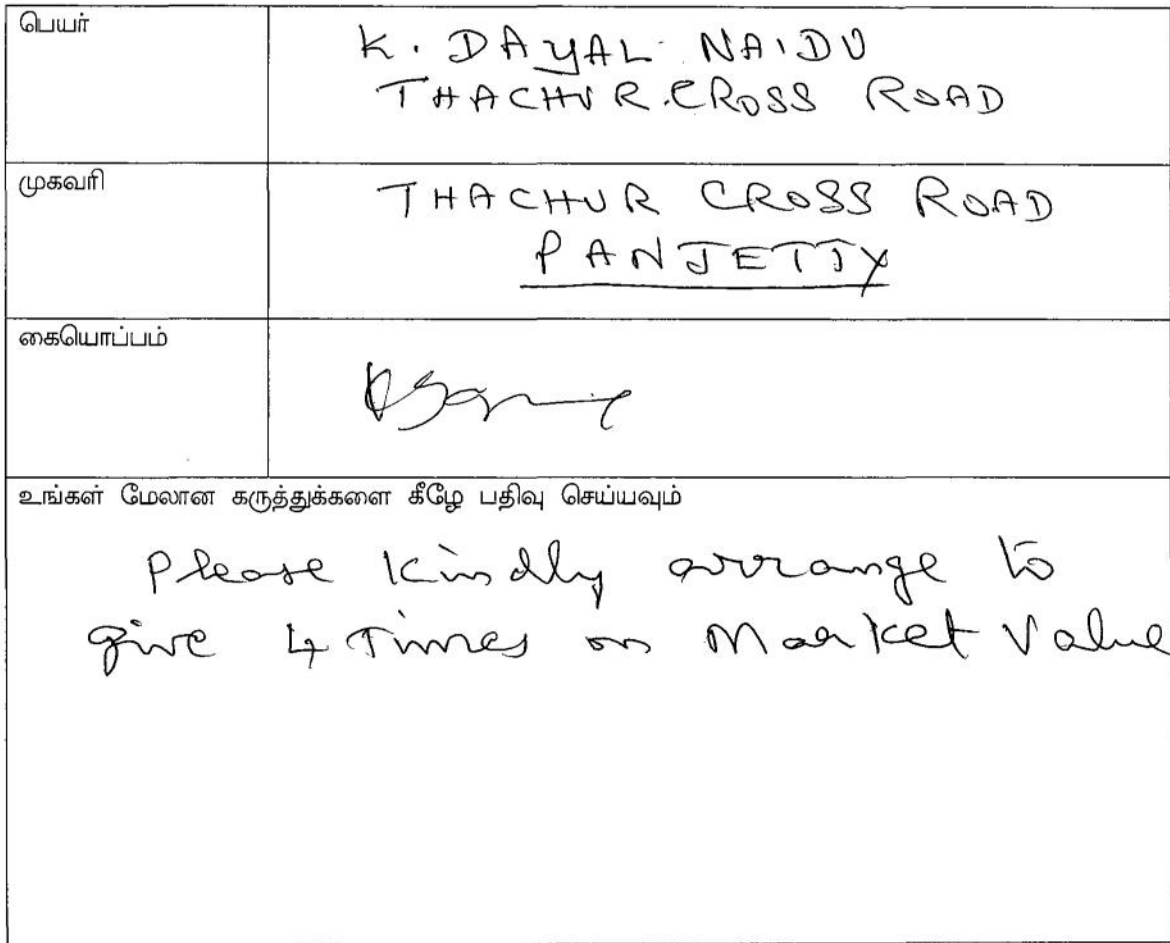 பெயர்
K. DAYAL NAIDU
THACHUR.CROSS ROAD
முகவரி
THACHUR CROSS ROAD
PANJETTY
கையொப்பம்
உங்கள் மேலான கருத்துக்களை கீழே பதிவு செய்யவும்
Please Kindly arrange to
give 4 Times on Market Value